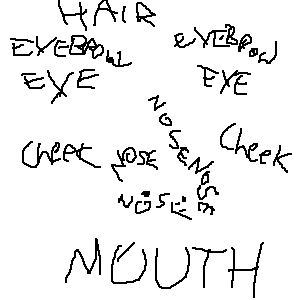 HAIR
EYEBROW EYEBROW
EYE EYE
NOSE
Cheek NOSE NOSE Cheek
NOSE
MOUTH